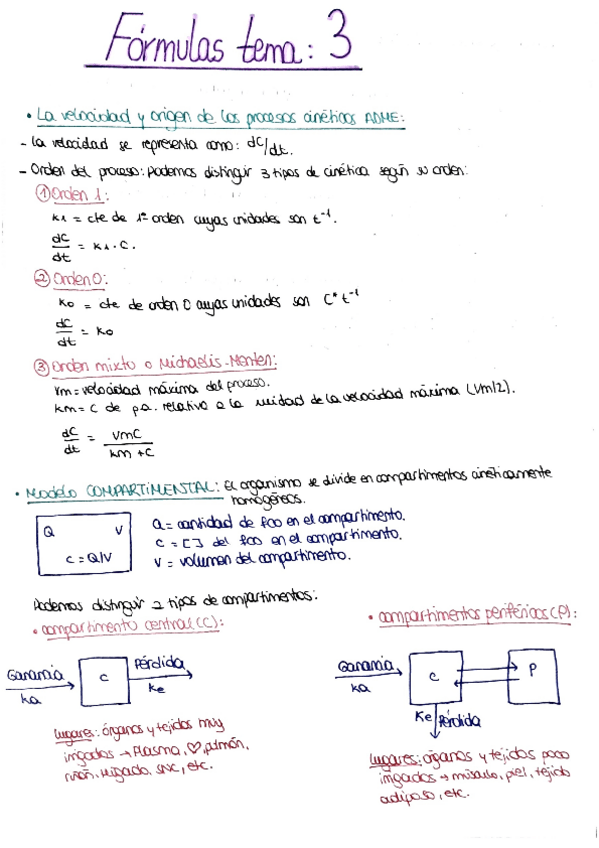 Fórmulas tema: 3
• La velocidad y origen de los procesos cinéticos ADME:
- La velocidad se representa como: dC/dt.
- Orden del proceso: Podemos distinguir 3 tipos de cinética según su orden:
① Orden 1:
K1 = cte de 1º orden cuyas unidades son t⁻¹.
dC/dt = K1 · C.
② Orden 0:
K0 = cte de orden 0 cuyas unidades son C* t⁻¹
dC/dt = K0
③ Orden mixto o Michaelis-Menten:
Vm = velocidad máxima del proceso.
Km = C de p.a. relativo a la mitad de la velocidad máxima (Vm/2).
dC/dt = VmC / Km + C
• Modelo COMPARTIMENTAL: El organismo se divide en compartimentos cinéticamente
homogéneos.
Q V
C = Q/V
Q = cantidad de fco en el compartimento.
C = [ ] del fco en el compartimento.
V = volumen del compartimento.
Podemos distinguir 2 tipos de compartimentos:
• compartimento central (C):
Ganancia
Ka
C
Pérdida
Ke
Lugares: órganos y tejidos muy
irrigados → Plasma, ♡, pulmón,
riñón, Hígado, SNC, etc.
• compartimentos periféricos (P):
Ganancia
Ka
C
P
Ke Pérdida
Lugares: órganos y tejidos poco
irrigados → músculo, piel, tejido
adiposo, etc.